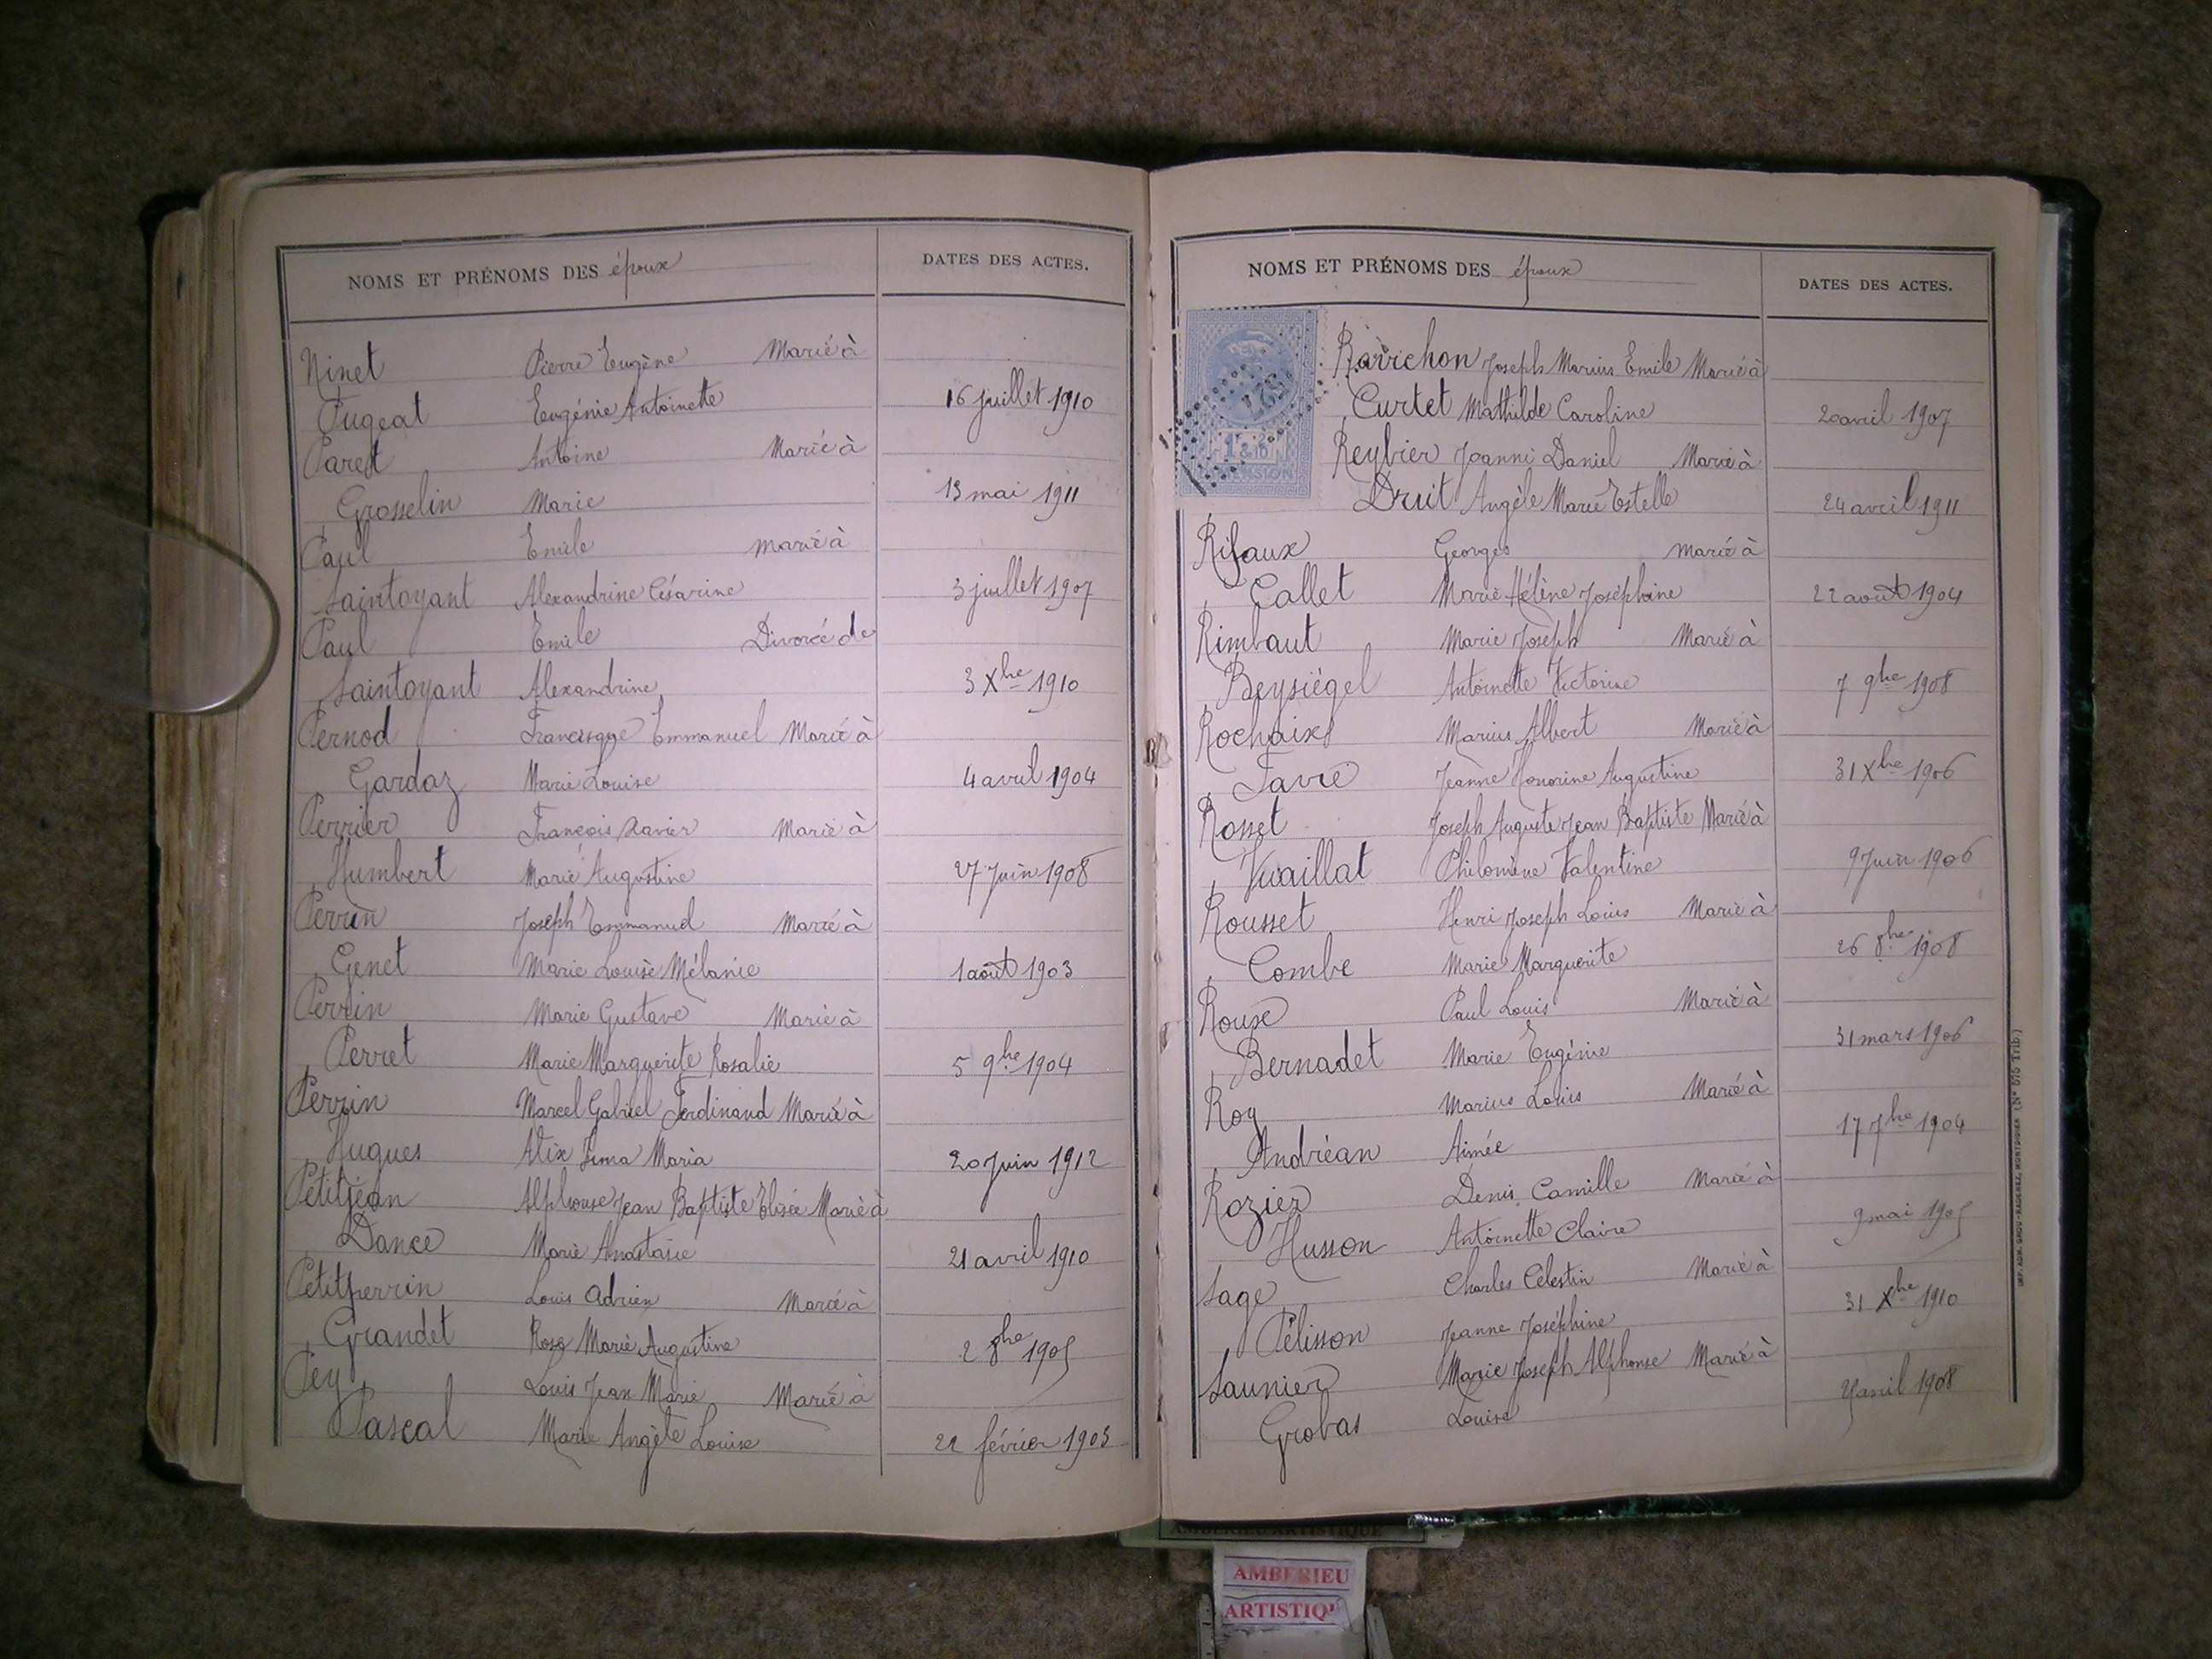 NOMS ET PRÉNOMS DES époux DATES DES ACTES.
Ninet Pierre Eugène Marié à
Pugeat Eugénie Antoinette 16 juillet 1910
Paret Antoine Marié à
Grosselin Marie 13 mai 1911
Paul Emile marié à
Saintoyant Alexandrine Césarine 3 juillet 1907
Paul Emile Divorcé de
Saintoyant Alexandrine 3 Xbre 1910
Pernod Francisque Emmanuel Marié à
Gardaz Marie Louise 4 avril 1904
Perrier François Xavier Marié à
Humbert Marie Augustine 27 Juin 1908
Perrin Joseph Emmanuel Marié à
Genet Marie Louise Mélanie 1 août 1903
Perrin Marie Gustave Marié à
Perret Marie Marguerite Rosalie 5 9bre 1904
Perrin Marcel Gabriel Ferdinand Marié à
Hugues Alix Maria 20 Juin 1912
Petitjean Alphonse Jean Baptiste Elisée Marié à
Dance Marie Anastasie 21 avril 1910
Petitperrin Louis Adrien Marié à
Grandet Rose Marie Augustine 2 8bre 1905
Pey Louis Jean Marie Marié à
Pascal Marie Angèle Louise 22 février 1903
NOMS ET PRÉNOMS DES époux DATES DES ACTES.
Ravichon Joseph Marius Emile Marié à
Curtet Mathilde Caroline 20 avril 1907
Reybier Joanni Daniel Marié à
Druit Angèle Marie Estelle 24 avril 1911
Rifaux Georges Marié à
Callet Marie Hélène Joséphine 22 août 1904
Rimbaut Marie Joseph Marié à
Beysiégel Antoinette Victorine 7 9bre 1908
Rochaix Marius Albert Marié à
Favre Jeanne Honorine Augustine 31 Xbre 1906
Rosset Joseph Auguste Jean Baptiste Marié à
Vuaillat Philomène Valentine 9 Juin 1906
Rousset Henri Joseph Louis Marié à
Combe Marie Marguerite 26 8bre 1908
Roux Paul Louis Marié à
Bernadet Marie Eugénie 31 mars 1906
Roy Marius Louis Marié à
Andréan Aimée 17 7bre 1904
Rozier Denis Camille Marié à
Husson Antoinette Claire 9 mai 1905
Sage Charles Célestin Marié à
Pélisson Jeanne Joséphine 31 Xbre 1910
Saunier Marie Joseph Alphonse Marié à
Grobas Louise avril 1908
AMBERIEU ARTISTIQUE
AMBERIEU
ARTISTIQU